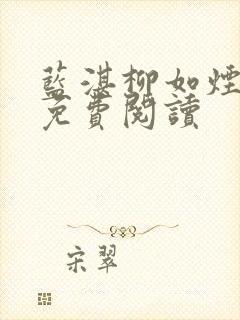 藍湛柳如煙
免費閱讀
宋翠